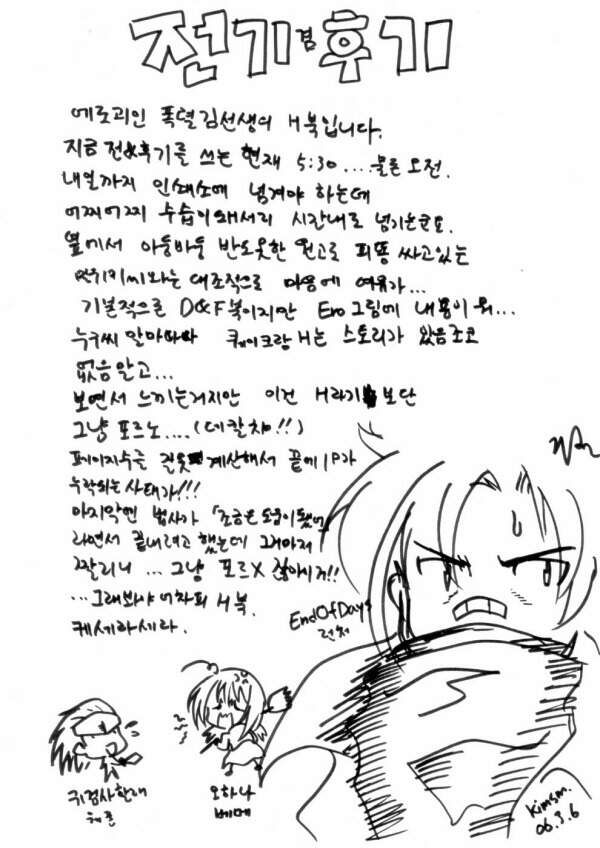 전기겸후기
에로괴인 폭렬김선생의 H북입니다.
지금 전&후기를 쓰는 현재 5:30 .... 물론 오전.
내일까지 인쇄소에 넘겨야 하는데
어찌어찌 수습이돼서리 시간내로 넘기는군요.
옆에서 아둥바둥 반도못한 원고로 피똥 싸고있는
대조적으로 마음에 여유가...
기본적으로 D&F북이지만 Ero그림에 내용이 뭐...
누구씨 말마따나 퀘이크랑 H는 스토리가 있음코
없음말고...
보면서 느끼는거지만 이건 H라기 보단
그냥 포르노....(데칼챠!!)
페이지수를 잘못 계산해서 끝에 1P가
누락되는 사태가!!!
마지막엔 법사가 「조금은 도움이됐어
라면서 끝내려고 했는데 그게마저
짤리니 ... 그냥 포르X 잖아시꺄!!
...그래봐야 어차피 H북.
케세라세라.
EndOfDays
런처
귀검사한테
오하나
베메
Kimsm.
06.3.6